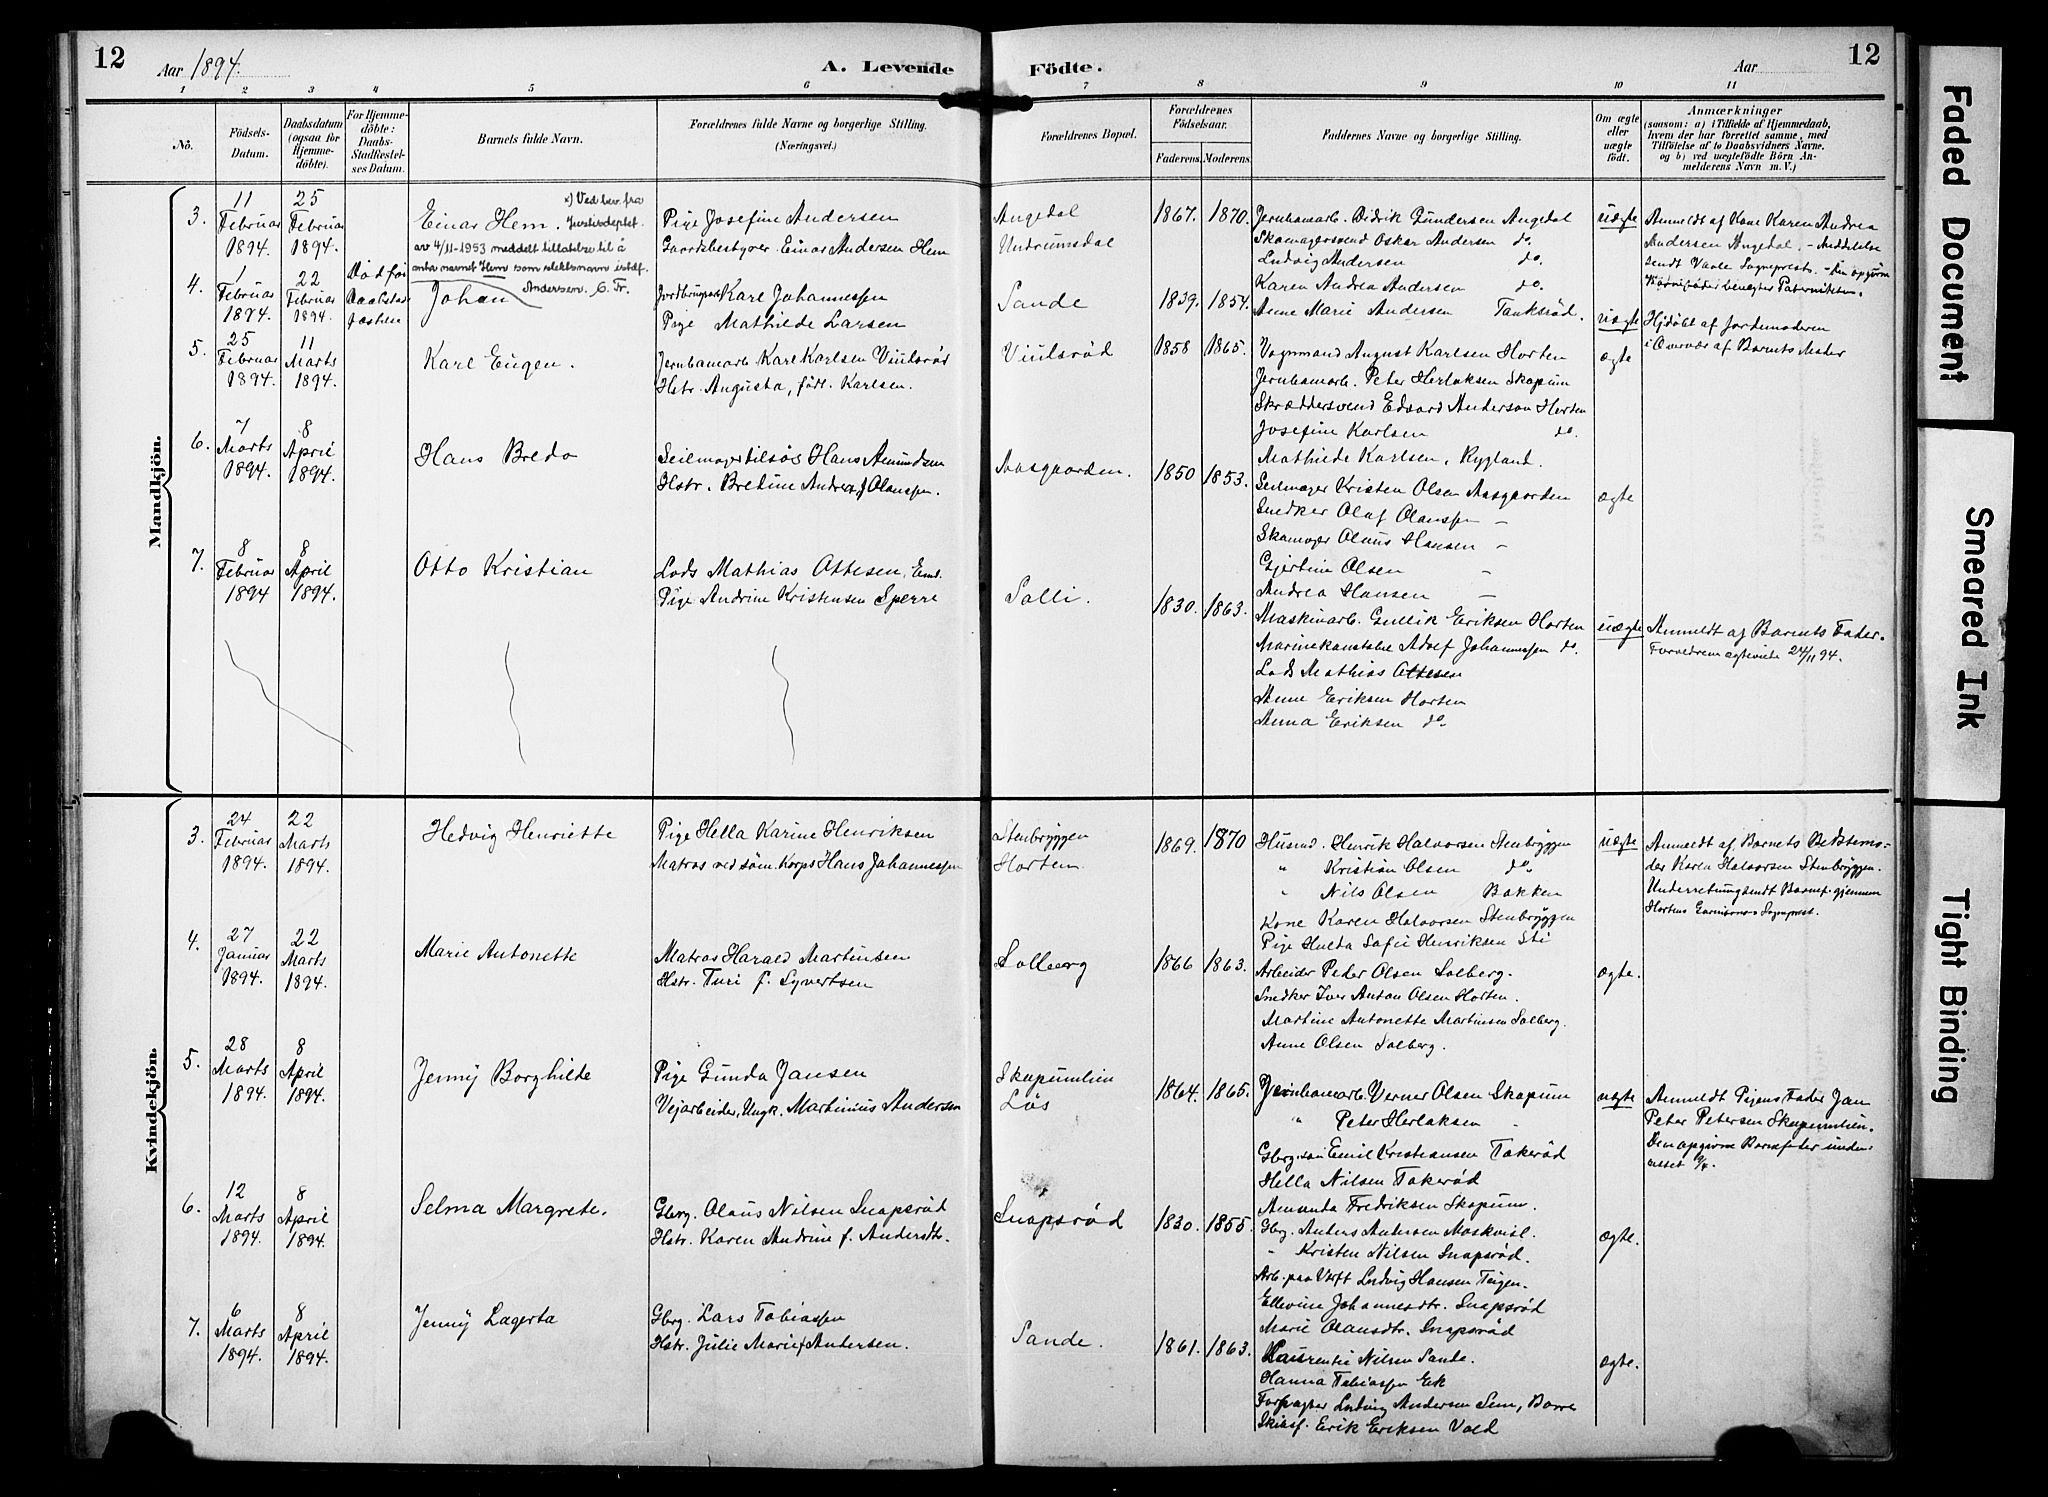 12
Aar 1894.
A. Levende
Födte.
Aar
12
1 2 3 4 5 6 7 8 9 10 11
No.
Födsels-
Datum.
Daabsdatum
(ogsaa for
Hjemme-
döbte).
For Hjemme-
döbte:
Daabs-
Stadfestel-
ses Datum.
Barnets fulde Navn.
Forældrenes fulde Navne og borgerlige Stilling.
(Næringsvei.)
Forældrenes Bopæl.
Forældrenes
Födselsaar.
Faderens. Moderens.
Faddernes Navne og borgerlige Stilling.
Om ægte
eller
uægte
født.
Anmærkninger
(saasom: a) i Tilfælde af Hjemmedaab,
hvem der har forrettet samme, med
Tilföielse af to Daabsvidners Navne,
og b) ved uægtefödte Börn An-
melderens Navn m. V.)
Mandkjön.
3.
11
Februar
1894.
25
Februar
1894.
Einar Hem.
x) Ved bev. fra
Justisdeptet
av 4/11-1953 meddelt tillatelse til å
anta navnet Hem som slektsnavn istdf.
Andersen. G. Tr.
Pige Josefine Andersen
Gaardsbestyrer Einar Andersen Hem
Angedal
Undrumsdal
1867. 1870.
Jernbanarb. Didrik Gundersen Angedal
Skomagersvend Oskar Andersen do.
Ludvig Andersen do.
Karen Andrea Andersen do.
Anne Marie Andersen Tanksröd.
uægte
Anmeldt af Kone Karen Andrea
Andersen Angedal. - Meddelelse
sendt Vaale Sogneprest. - Den opgivne
Barnefader benegter Paterniteten.
4.
1
Februar
1894.
22
Februar
1894.
Död för
Daabstad
fæstelse
Johan
Jordbrugsarb Karl Johannessen
Pige Mathilde Larsen
Sande
1839. 1854.
uægte
Hjdöbt af Jordemoderen
i Overvær af Barnets Moder
5.
25
Februar
1894.
11
Marts
1894.
Karl Eugen.
Jernbamarb Karl Karlsen Viulsröd
Hstr. Augusta, födt. Karlsen.
Viulsröd
1858 1865.
Vognmand August Karlsen Horten
Jernbamarb. Peter Herlaksen Skopum
Skræddersvend Edvard Anderson Horten
Josefine Karlsen do.
Mathilde Karlsen, Rygland.
ægte
6.
7
Marts
1894.
8
April
1894.
Hans Bredo
Seilmager tilsös Hans Amundsen
Hstr. Bredine Andrea f Olaussen.
Aasgaarden.
1850 1853.
Seilmager Kristen Olsen Aasgaarden
Snedker Olaf Olaussen -
Skomager Olaus Hansen -
Gjertine Olsen -
Andrea Hansen -
ægte
7.
8
Februar
1894
8
April
1894.
Otto Kristian
Lods Mathias Ottesen, Enk.
Pige Andrine Kristensen Sperre
Solli.
1830. 1863.
Maskinarb. Gullik Eriksen Horten
Marinekonstabel Adolf Johannessen do.
Lods Mathias Ottesen
Anne Eriksen Horten
Anna Eriksen do.
uægte
Anmeldt af Barnets Fader.
Forældrene ægteviede 24/11 94.
Kvindekjön.
3.
24
Februar
1894.
22
Marts
1894.
Hedvig Henriette
Pige Hella Karine Henriksen
Matros ved söm. Korps Hans Johannessen
Stenbryggen
Horten
1869. 1870
Husmd. Henrik Halvorsen Stenbryggen
" Kristian Olsen do.
" Nils Olsen Bakken
Kone Karen Halvorsen Stenbryggen
Pige Hulda Sofie Henriksen Sti
uægte
Anmeldt af Barnets Bedstemo-
der Karen Halvorsen Stenbryggen.
Underretning sendt Barnef. gjennem
Hortens Garnisons-Sogneprest.
4.
27
Januar
1894.
22
Marts
1894.
Marie Antonette
Matros Harald Martinsen
Hstr. Turi f. Syvertsen
Solberg
1866 1863.
Arbeider Peder Olsen Solberg.
Snedker Iver Anton Olsen Horten.
Martine Antonette Martinsen Solberg.
Anne Olsen Solberg.
ægte.
5.
28
Marts
1894.
8
April
1894.
Jenny Borghilde
Pige Gunda Jansen
Vejarbeider, Ungk. Martinius Andersen
Skopumlien
Lös
1864. 1865.
Jernbamarb. Verner Olsen Skopum
" Peter Herlaksen -
Gbrg. sön Emil Kristiansen Takeröd
Hella Nilsen Takeröd
Amanda Fredriksen Skopum.
uægte
Anmeldt Pigens Fader Jan
Peter Petersen Skopumlien.
Den opgivne Barnefader under-
rettet 9/4.
6.
12
Marts
1894.
8
April
1894.
Selma Margrete.
Gbrg. Olaus Nilsen Snapsröd
Hstr. Karen Andrine f. Andersdtr.
Snapsröd
1830. 1855.
Gbrg. Anders Andersen Moskvisl.
" Kristen Nilsen Snapsröd.
Arb. paa Verft Ludvig Hansen Teigen.
Ellevine Johannesdtr. Snapsröd
Marie Olausdtr. Snapsröd
ægte.
7.
6
Marts
1894.
8
April
1894.
Jenny Lagerta
Gbrg. Lars Tobiassen
Hstr. Julie Marie f Andersen.
Sande.
1861. 1863.
Laurentie Nilsen Sande.
Hanna Tobiassen Eik
Forpagter Ludvig Andersen Sem, Borre
Skibsf. Erik Eriksen Vold
ægte.
Faded Document
Smeared Ink
Tight Binding